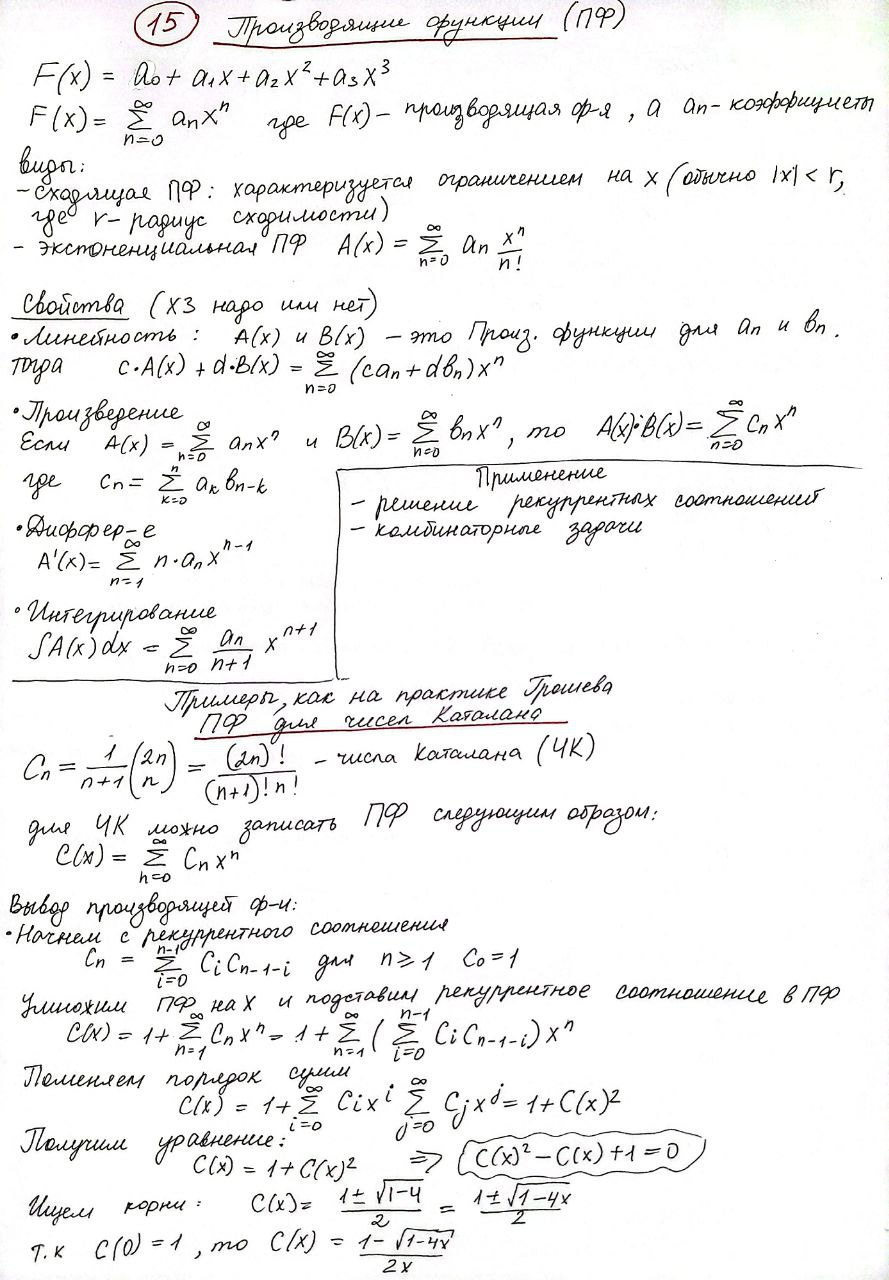 15 Производящие функции (ПФ)
F(x) = a₀ + a₁x + a₂x² + a₃x³
F(x) = ∑_{n=0}^{∞} aₙxⁿ где F(x) – производящая ф-я, а aₙ – коэффициеты
виды:
– сходящая ПФ: характеризуется ограничением на x (обычно |x| < r,
где r – радиус сходимости)
– экспоненциальная ПФ A(x) = ∑_{n=0}^{∞} aₙ xⁿ/n!
Свойства (ХЗ надо или нет)
• Линейность: A(x) и B(x) – это Произ. функции для aₙ и bₙ.
тогда c·A(x) + d·B(x) = ∑_{n=0}^{∞} (caₙ + dbₙ)xⁿ
• Произведение
Если A(x) = ∑_{n=0}^{∞} aₙxⁿ и B(x) = ∑_{n=0}^{∞} bₙxⁿ, то A(x)·B(x) = ∑_{n=0}^{∞} cₙxⁿ
где cₙ = ∑_{k=0}^{n} aₖbₙ₋ₖ
• Диффер-е
A'(x) = ∑_{n=1}^{∞} n·aₙxⁿ⁻¹
• Интегрирование
∫A(x)dx = ∑_{n=0}^{∞} aₙ/(n+1) xⁿ⁺¹
Применение
– решение рекуррентных соотношений
– комбинаторные задачи
Примеры, как на практике Грошева
ПФ для чисел Каталана
Cₙ = 1/(n+1) (2n n) = (2n)!/((n+1)!n!) – числа Каталана (ЧК)
для ЧК можно записать ПФ следующим образом:
C(x) = ∑_{n=0}^{∞} Cₙxⁿ
Вывод производящей ф-и:
• Начнем с рекуррентного соотношения
Cₙ = ∑_{i=0}^{n-1} CᵢCₙ₋₁₋ᵢ для n ≥ 1 C₀ = 1
Умножим ПФ на X и подставим рекуррентное соотношение в ПФ
C(x) = 1 + ∑_{n=1}^{∞} Cₙxⁿ = 1 + ∑_{n=1}^{∞} (∑_{i=0}^{n-1} CᵢCₙ₋₁₋ᵢ) xⁿ
Поменяем порядок сумм
C(x) = 1 + ∑_{i=0}^{∞} Cᵢxⁱ ∑_{j=0}^{∞} Cⱼxʲ = 1 + C(x)²
Получим уравнение:
C(x) = 1 + C(x)² ⇒ C(x)² – C(x) + 1 = 0
Ищем корни: C(x) = (1 ± √(1-4))/2 = (1 ± √(1-4x))/2
т.к C(0) = 1, то C(x) = (1 - √(1-4x))/2x